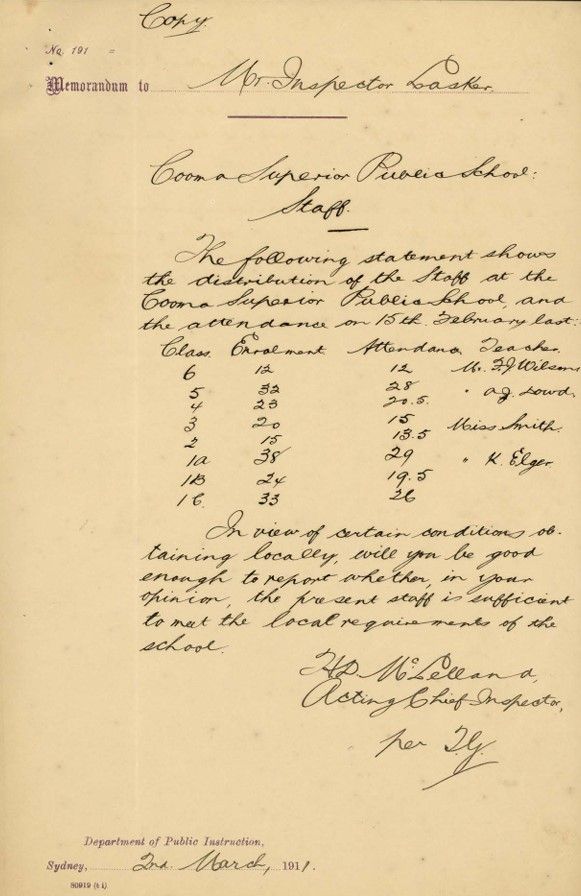 Copy.
No. 191 =
Memorandum to Mr. Inspector Lasker.
Cooma Superior Public School:
Staff.
The following statement shows
the distribution of the Staff at the
Cooma Superior Public School, and
the attendance on 15th. February last:
Class Enrolment Attendance Teacher
6 12 12 Mr. F J Wilson
5 32 28 " A.J. Dowd.
4 23 20.5.
3 20 15 Miss Smith.
2 15 13.5
1a 38 29 " K. Elger
1B 24 19.5
1C. 33 26
In view of certain conditions ob-
taining locally, will you be good
enough to report whether, in your
opinion, the present staff is sufficient
to meet the local requirements of the
school.
H D McLelland,
Acting Chief Inspector,
per
Department of Public Instruction,
Sydney, 2nd. March, 1911.
80919 (4 i)